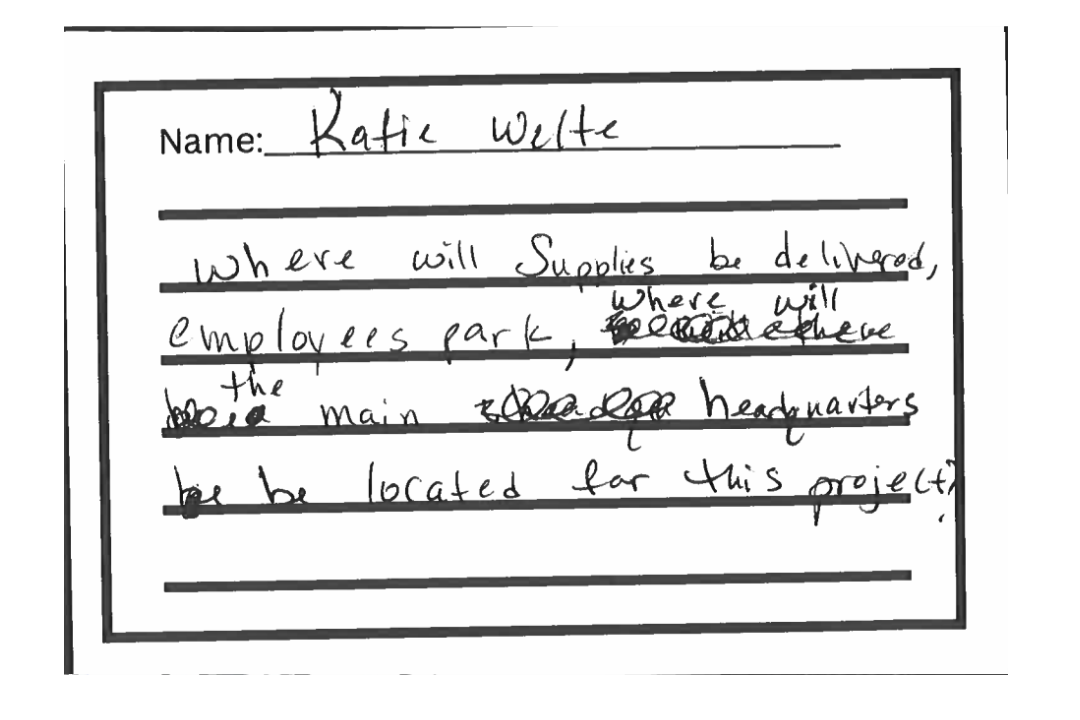 Name: Katie Welte
Where will Supplies be delivered,
employees park, where will
the main headquarters
be located for this project?